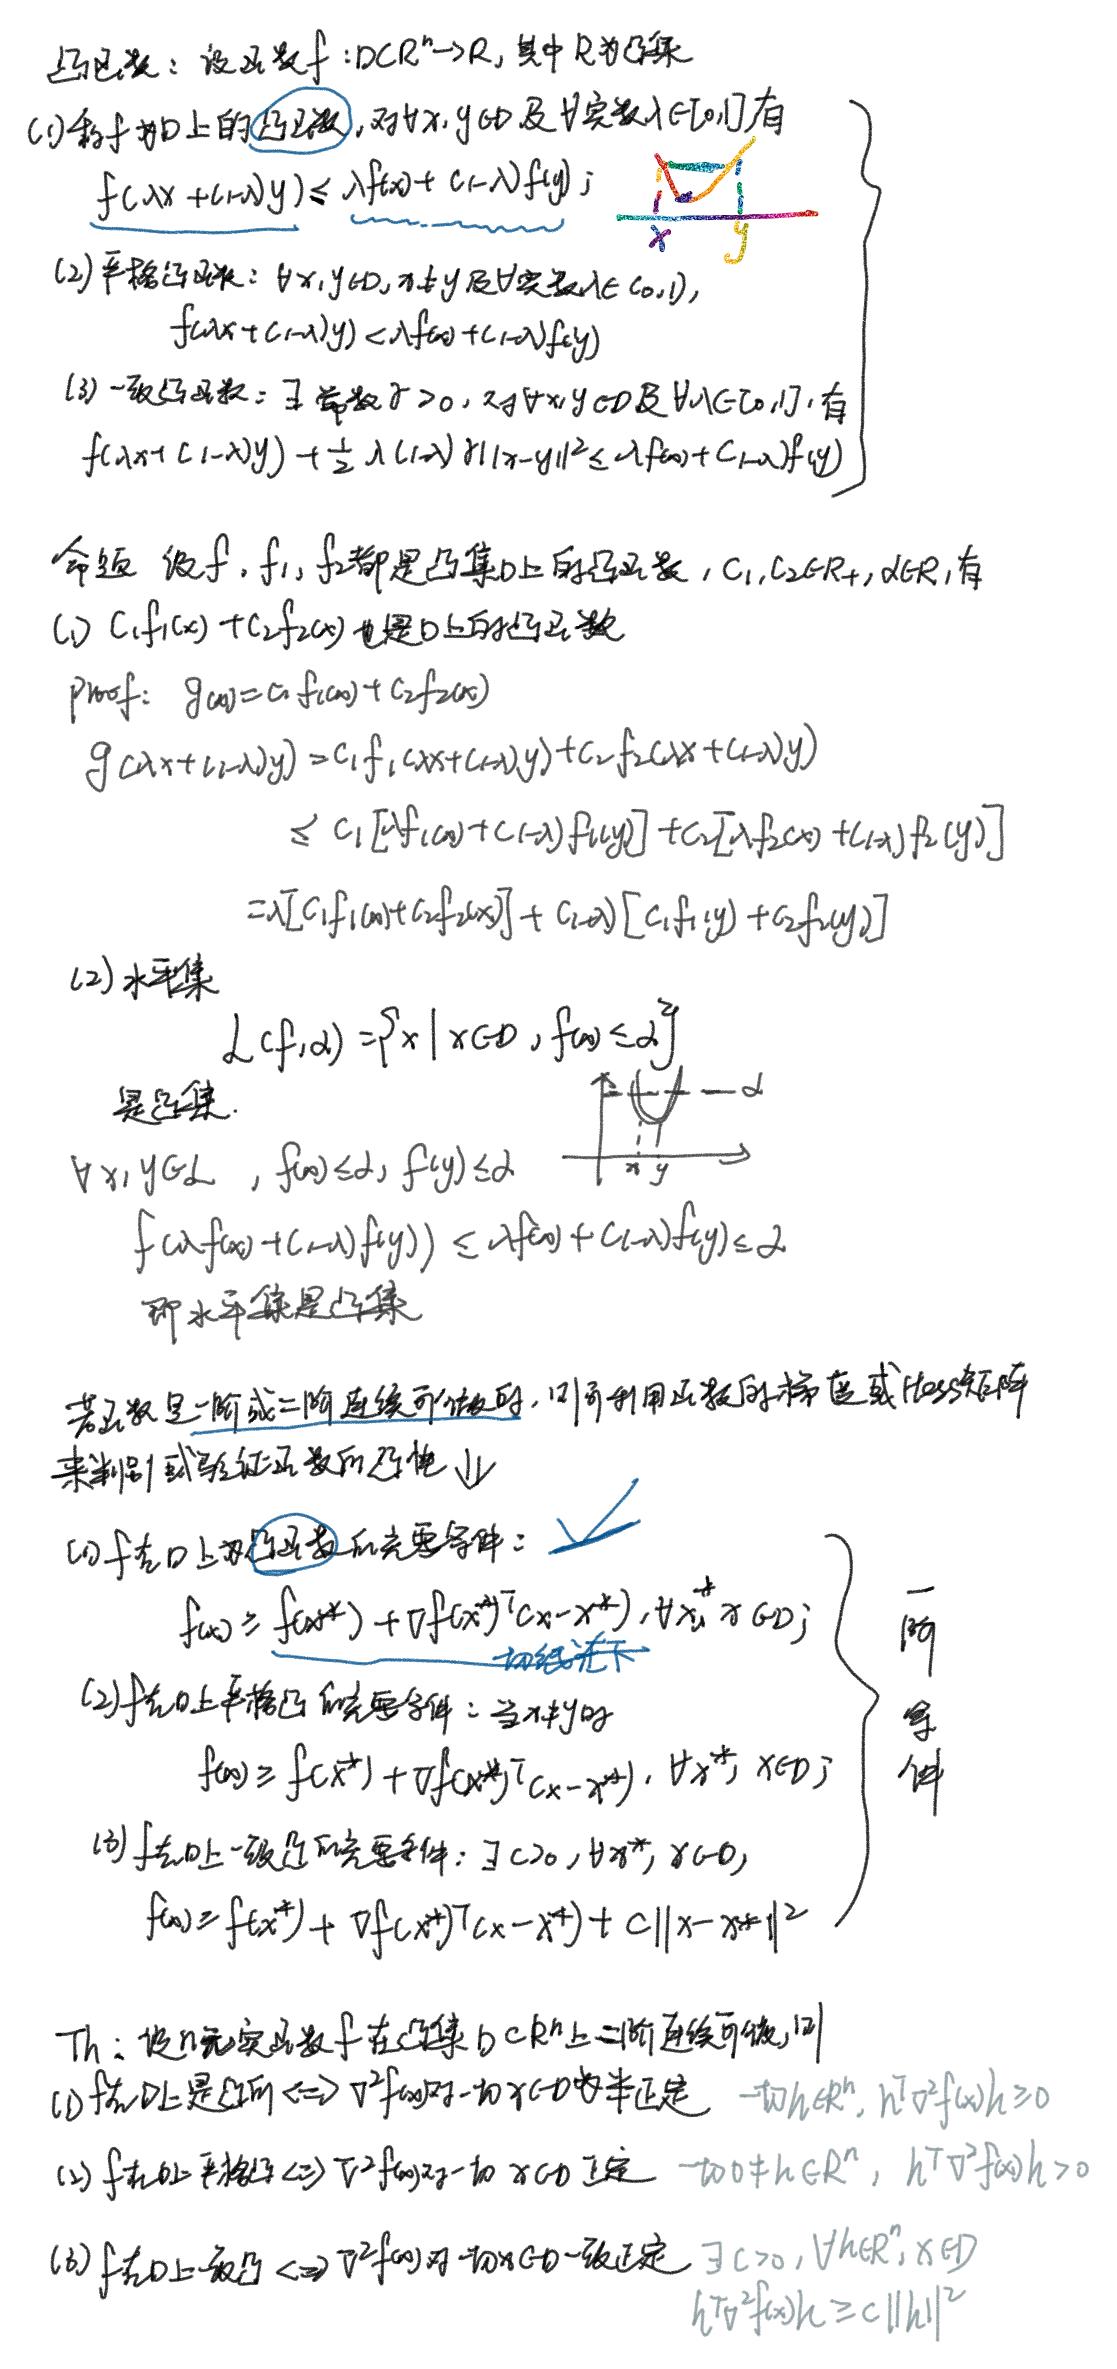 凸函数：设函数f：D⊂Rⁿ→R，其中R为凸集
(1)称f为D上的凸函数，对∀x，y∈D及∀实数λ∈[0,1]有
f(λx+(1-λ)y)≤λf(x)+(1-λ)f(y)；
x y
(2)严格凸函数：∀x,y∈D,x≠y及∀实数λ∈(0,1)，
f(λx+(1-λ)y)<λf(x)+(1-λ)f(y)
(3)一致凸函数：∃常数γ>0，对∀x,y∈D及∀λ∈[0,1]，有
f(λx+(1-λ)y)+½λ(1-λ)γ||x-y||²≤λf(x)+(1-λ)f(y)
命题 设f，f₁，f₂都是凸集D上的凸函数，C₁,C₂∈R₊,α∈R,有
(1) C₁f₁(x)+C₂f₂(x)也是D上的凸函数
proof: g(x)=C₁f₁(x)+C₂f₂(x)
g(λx+(1-λ)y)=C₁f₁(λx+(1-λ)y)+C₂f₂(λx+(1-λ)y)
≤C₁[λf₁(x)+(1-λ)f₁(y)]+C₂[λf₂(x)+(1-λ)f₂(y)]
=λ[C₁f₁(x)+C₂f₂(x)]+(1-λ)[C₁f₁(y)+C₂f₂(y)]
(2)水平集
L(f,α)={x|x∈D，f(x)≤α}
是凸集.
α
x y
∀x,y∈L，f(x)≤α，f(y)≤α
f(λf(x)+(1-λ)f(y))≤λf(x)+(1-λ)f(y)≤α
即水平集是凸集
若函数是一阶或二阶连续可微的，则可利用函数的梯度或Hess矩阵
来判别或验证函数的凸性⇓
(1)f在D上为凸函数的充要条件：
f(x)≥f(x*)+∇f(x*)ᵀ(x-x*)，∀x*,x∈D；
切线法下
(2)f在D上严格凸的充要条件：当x≠y时
f(x)≥f(x*)+∇f(x*)ᵀ(x-x*)，∀x*，x∈D；
(3)f在D上一致凸的充要条件：∃c>0，∀x*，x∈D，
f(x)≥f(x*)+∇f(x*)ᵀ(x-x*)+c||x-x*||²
一阶条件
Th：设n元实函数f在凸集D⊂Rⁿ上二阶连续可微，则
(1)f在D上是凸的<=>∇²f(x)对一切x∈D为半正定 一切h∈Rⁿ，hᵀ∇²f(x)h≥0
(2)f在D上严格凸<=>∇²f(x)对一切x∈D正定 一切0≠h∈Rⁿ，hᵀ∇²f(x)h>0
(3)f在D上一致凸<=>∇²f(x)对一切x∈D一致正定 ∃c>0，∀h∈Rⁿ，x∈D
hᵀ∇²f(x)h≥c||h||²